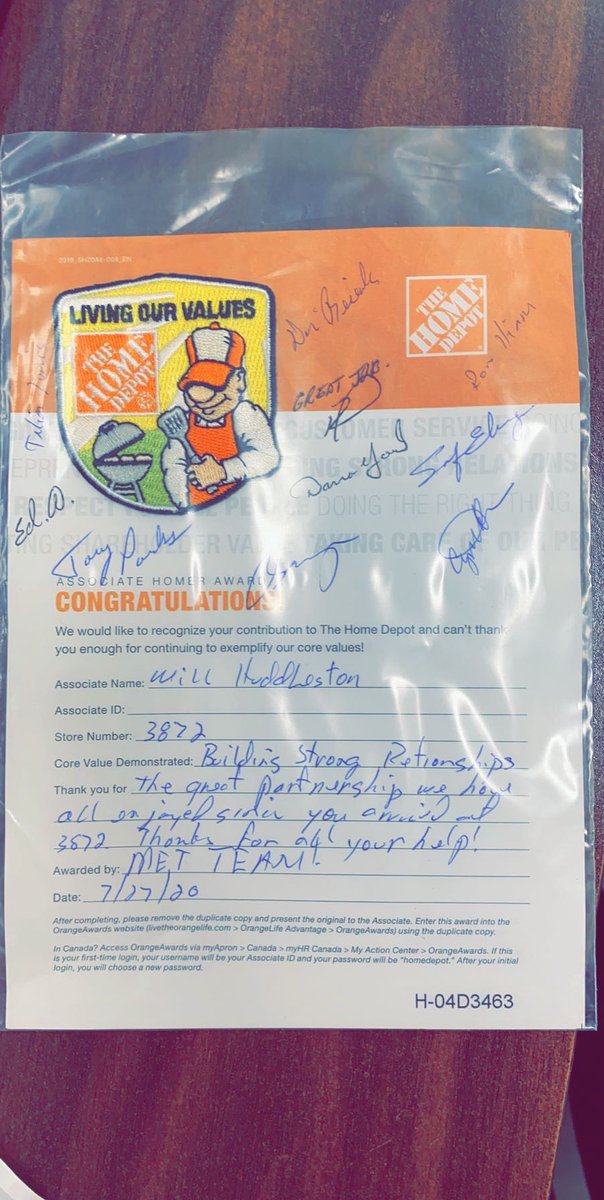 2019_SH2084-004_EN
LIVING OUR VALUES
THE HOME DEPOT
THE HOME DEPOT
GREAT JOB.
Ed. W.
Tony Parks
CUSTOMER SERVICE
ING STRONG RELATIONS
RESPECT PEOPLE DOING THE RIGHT THING
NG SHAREHOLDER VA TAKING CARE OF OUR PE
ASSOCIATE HOMER AWARD
CONGRATULATIONS!
We would like to recognize your contribution to The Home Depot and can't thank
you enough for continuing to exemplify our core values!
Associate Name: Will Huddleston
Associate ID:
Store Number: 3872
Core Value Demonstrated: Building Strong Retionships
Thank you for the great partnership we have
all enjoyed you at
3872 Thanks for all your help!
Awarded by: MET TEAM!
Date: 7/27/20
After completing, please remove the duplicate copy and present the original to the Associate. Enter this award into the
OrangeAwards website (livetheorangelife.com > OrangeLife Advantage > OrangeAwards) using the duplicate copy.
In Canada? Access OrangeAwards via myApron > Canada > myHR Canada > My Action Center > OrangeAwards. If this
is your first-time login, your username will be your Associate ID and your password will be "homedepot." After your initial
login, you will choose a new password.
H-04D3463